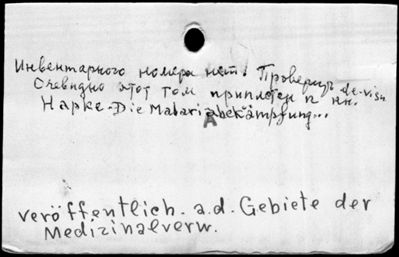 Инвентарного номера нет! Проверить de-visu
Очевидно этот том приплетен к кн.
Hapke-Die Malariabekämpfung...
veröffentlich. a.d. Gebiete der
Medizinalverw.